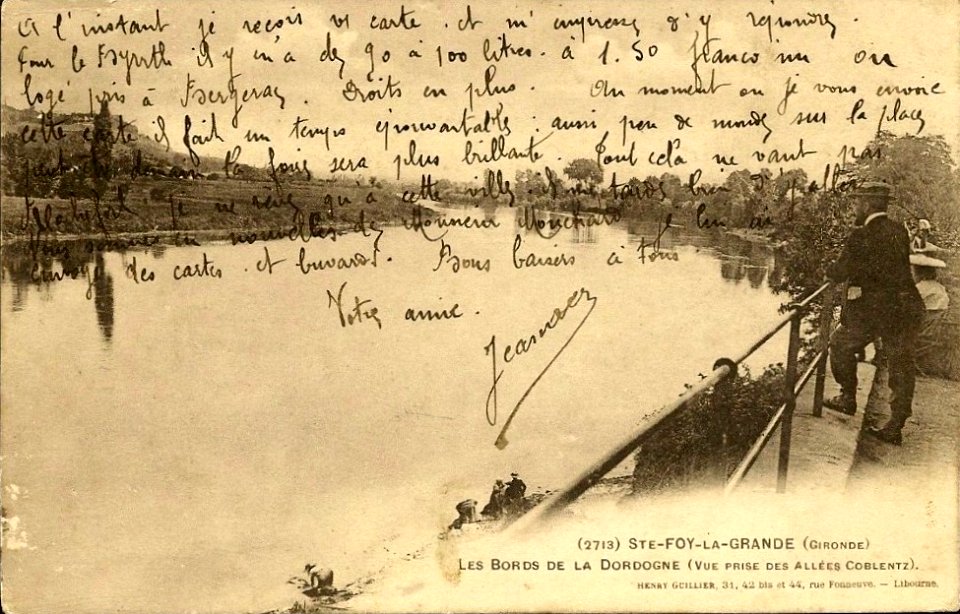 A l'instant je reçois vs carte et m'empresse d'y répondre,
Pour le Byrrh il y en a de 90 à 100 litres à 1.50 franco nu ou
logé pris à Bergerac. Droits en plus. Au moment ou je vous envoie
cette carte il fait un temps épouvantable; aussi peu de monde sur la place
demain la foire sera plus brillante. Tout cela ne vaut pas
je ne rêve qu'à cette ville et me tarde bien d'y aller
nous sommes en nouvelles de Monsieur Mouchard je lui ai
envoyé des cartes et buvards. Bons baisers à Tous
Votre amie.
Jeanne
(2713) STE-FOY-LA-GRANDE (GIRONDE)
LES BORDS DE LA DORDOGNE (VUE PRISE DES ALLÉES COBLENTZ).
HENRY GUILLIER, 31, 42 bis et 44, rue Fonneuve. — Libourne.